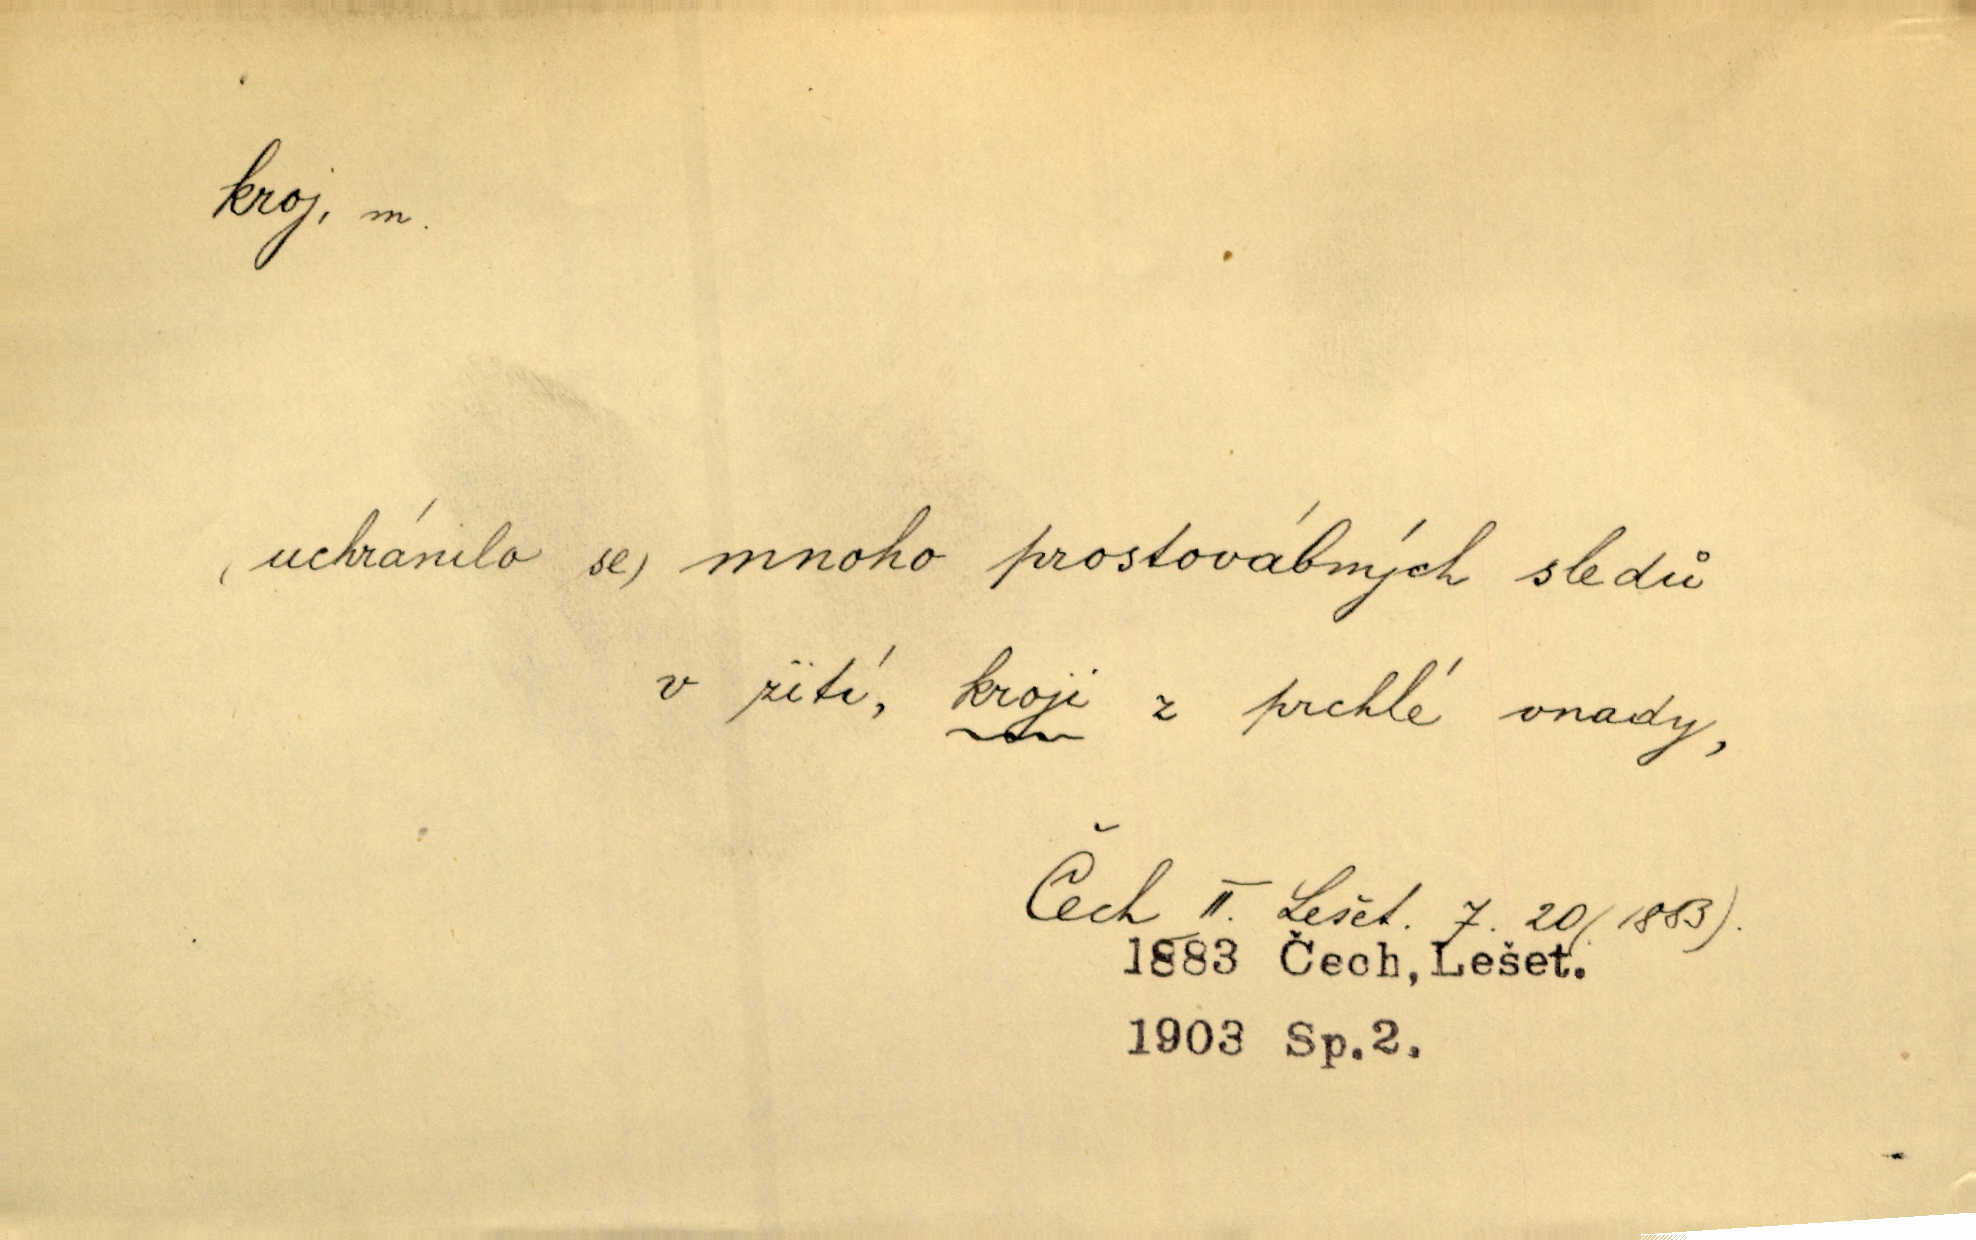 kroj, m.
(uchránilo se) mnoho prostovábných sledů
v žití, kroji z prchlé vnady,
Čech II. Lešet. 7. 20 (1883).
1883 Čech, Lešet.
1903 Sp.2.